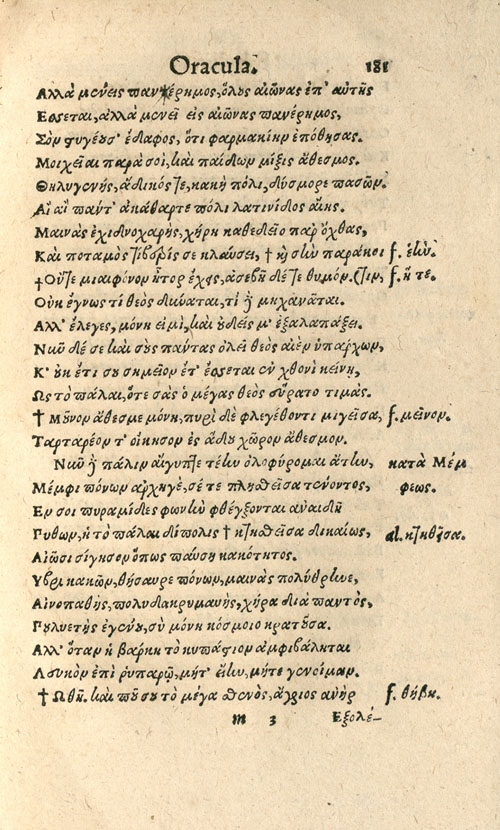 Oracula. 181
Αλλὰ μενεῖς πανέρημος, ὅλους αἰῶνας ἐπ' αὐτῆς
Εσσεται, ἀλλὰ μενεῖ εἰς αἰῶνας πανέρημος,
Σὸν στυγέουσ' ἔδαφος, ὅτι φαρμακίην ἐπόθησας.
Μοιχεῖαι παρὰ σοὶ, καὶ παίδων μίξις ἄθεσμος.
Θηλυγενὴς, ἄδικός τε, κακὴ πόλι, δύσμορε πασῶν.
Αἲ αἲ παντ' ἀκάθαρτε πόλι λατινίδος αἴης.
Μαινὰς ἐχιδνοχαρὴς, χήρη καθεδεῖο παρ' ὄχθας,
Καὶ ποταμὸς τίβερίς σε κλαύσει, † ἣ σὺν παράκοι f. ἑὴν.
† Οὔτε μιαιφόνον ἦτορ ἔχεις, ἀσεβῆ δέ τε θυμόν. (τιν, f. ἥ τε.
Οὐκ ἔγνως τί θεὸς δύναται, τί ἢ μηχανᾶται.
Αλλ' ἔλεγες, μόνη εἰμὶ, καὶ οὐδείς μ' ἐξαλαπάξει.
Νῦν δέ σε καὶ σοὺς πάντας ὀλεῖ θεὸς αἰὲν ὑπάρχων,
Κ' οὐκ ἔτι σου σημεῖον ἔτ' ἔσσεται ἐν χθονὶ κείνῃ,
Ως τὸ πάλαι, ὅτε σὰς ὁ μέγας θεὸς εὕρατο τιμάς.
† Μοῦνον ἄθεσμε μόνη, πυρὶ δὲ φλεγέθοντι μιγεῖσα, f. μεῖνον.
Ταρτάρεόν τ' οἴκησον ἐς ἅδου χῶρον ἄθεσμον.
Νῦν ἢ πάλιν αἴγυπτε τεὴν ὀλοφύρομαι ἄτην, κατὰ Μέμ
Μέμφι πόνων ἀρχηγὲ, σέ τε πληθεῖσα τένοντος, φεως.
Εν σοι πυραμίδες φωνὴν φθέγξονται ἀναιδῆ
Πυθὼν, ἡ τὸ πάλαι δίπολις † κτηθεῖσα δικαίως, al. κτηθῆσα.
Αἰῶσι σίγησον ὅπως παύσῃ κακότητος.
Υβρι κακῶν, θήσαυρε πόνων, μαινὰς πολύθρηνε,
Αἰνοπαθὴς, πολυδακρυμανὴς, χήρα διὰ παντὸς,
Πουλυετὴς ἐγένου, σὺ μόνη κόσμοιο κρατοῦσα.
Αλλ' ὅταν ἡ βάρκη τὸ κυπάσιον ἀμφιβάληται
Λευκὸν ἐπὶ ῥυπαρῷ, μήτ' εἴην, μήτε γενοίμαν.
† Ωθη. καὶ ποῦ σου τὸ μέγα σθενὸς, ἄγριος ἀνὴρ f. θήβη.
m 3 Εξολέ-